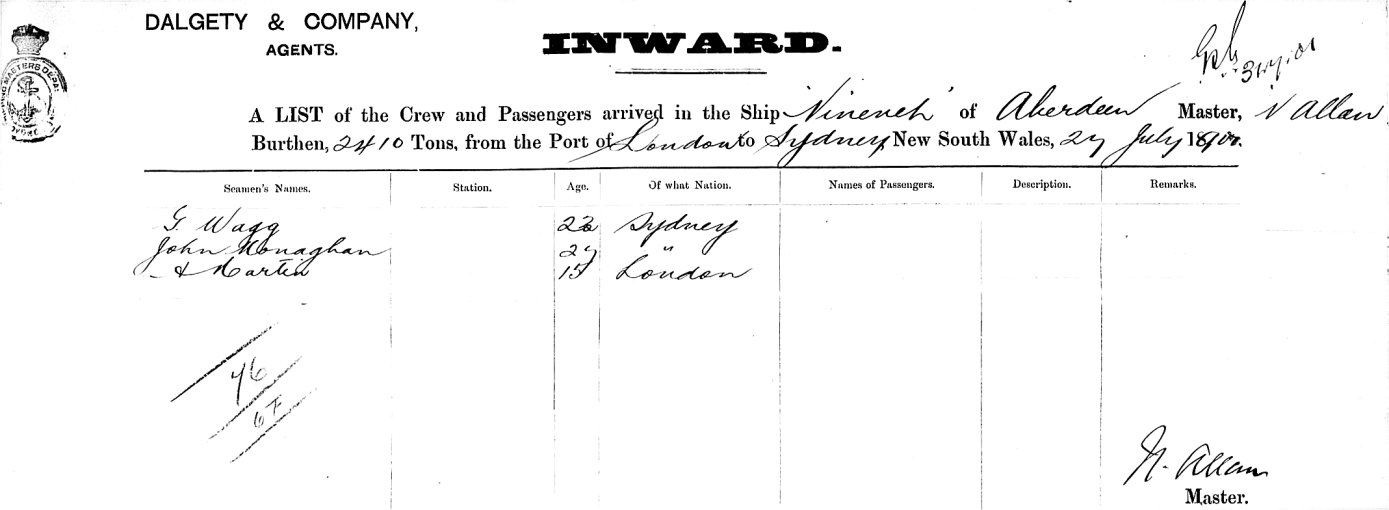 DALGETY & COMPANY,
AGENTS.
INWARD.
A LIST of the Crew and Passengers arrived in the Ship "Nineveh" of Aberdeen Master, N Allan
Burthen, 2410 Tons, from the Port of London to Sydney, New South Wales, 27 July
Seamen's Names. Station. Age. Of what Nation. Names of Passengers. Description. Remarks.
G. Wagg Sydney
John Monaghan 27 "
Martin 15 London
46
N. Allan
Master.